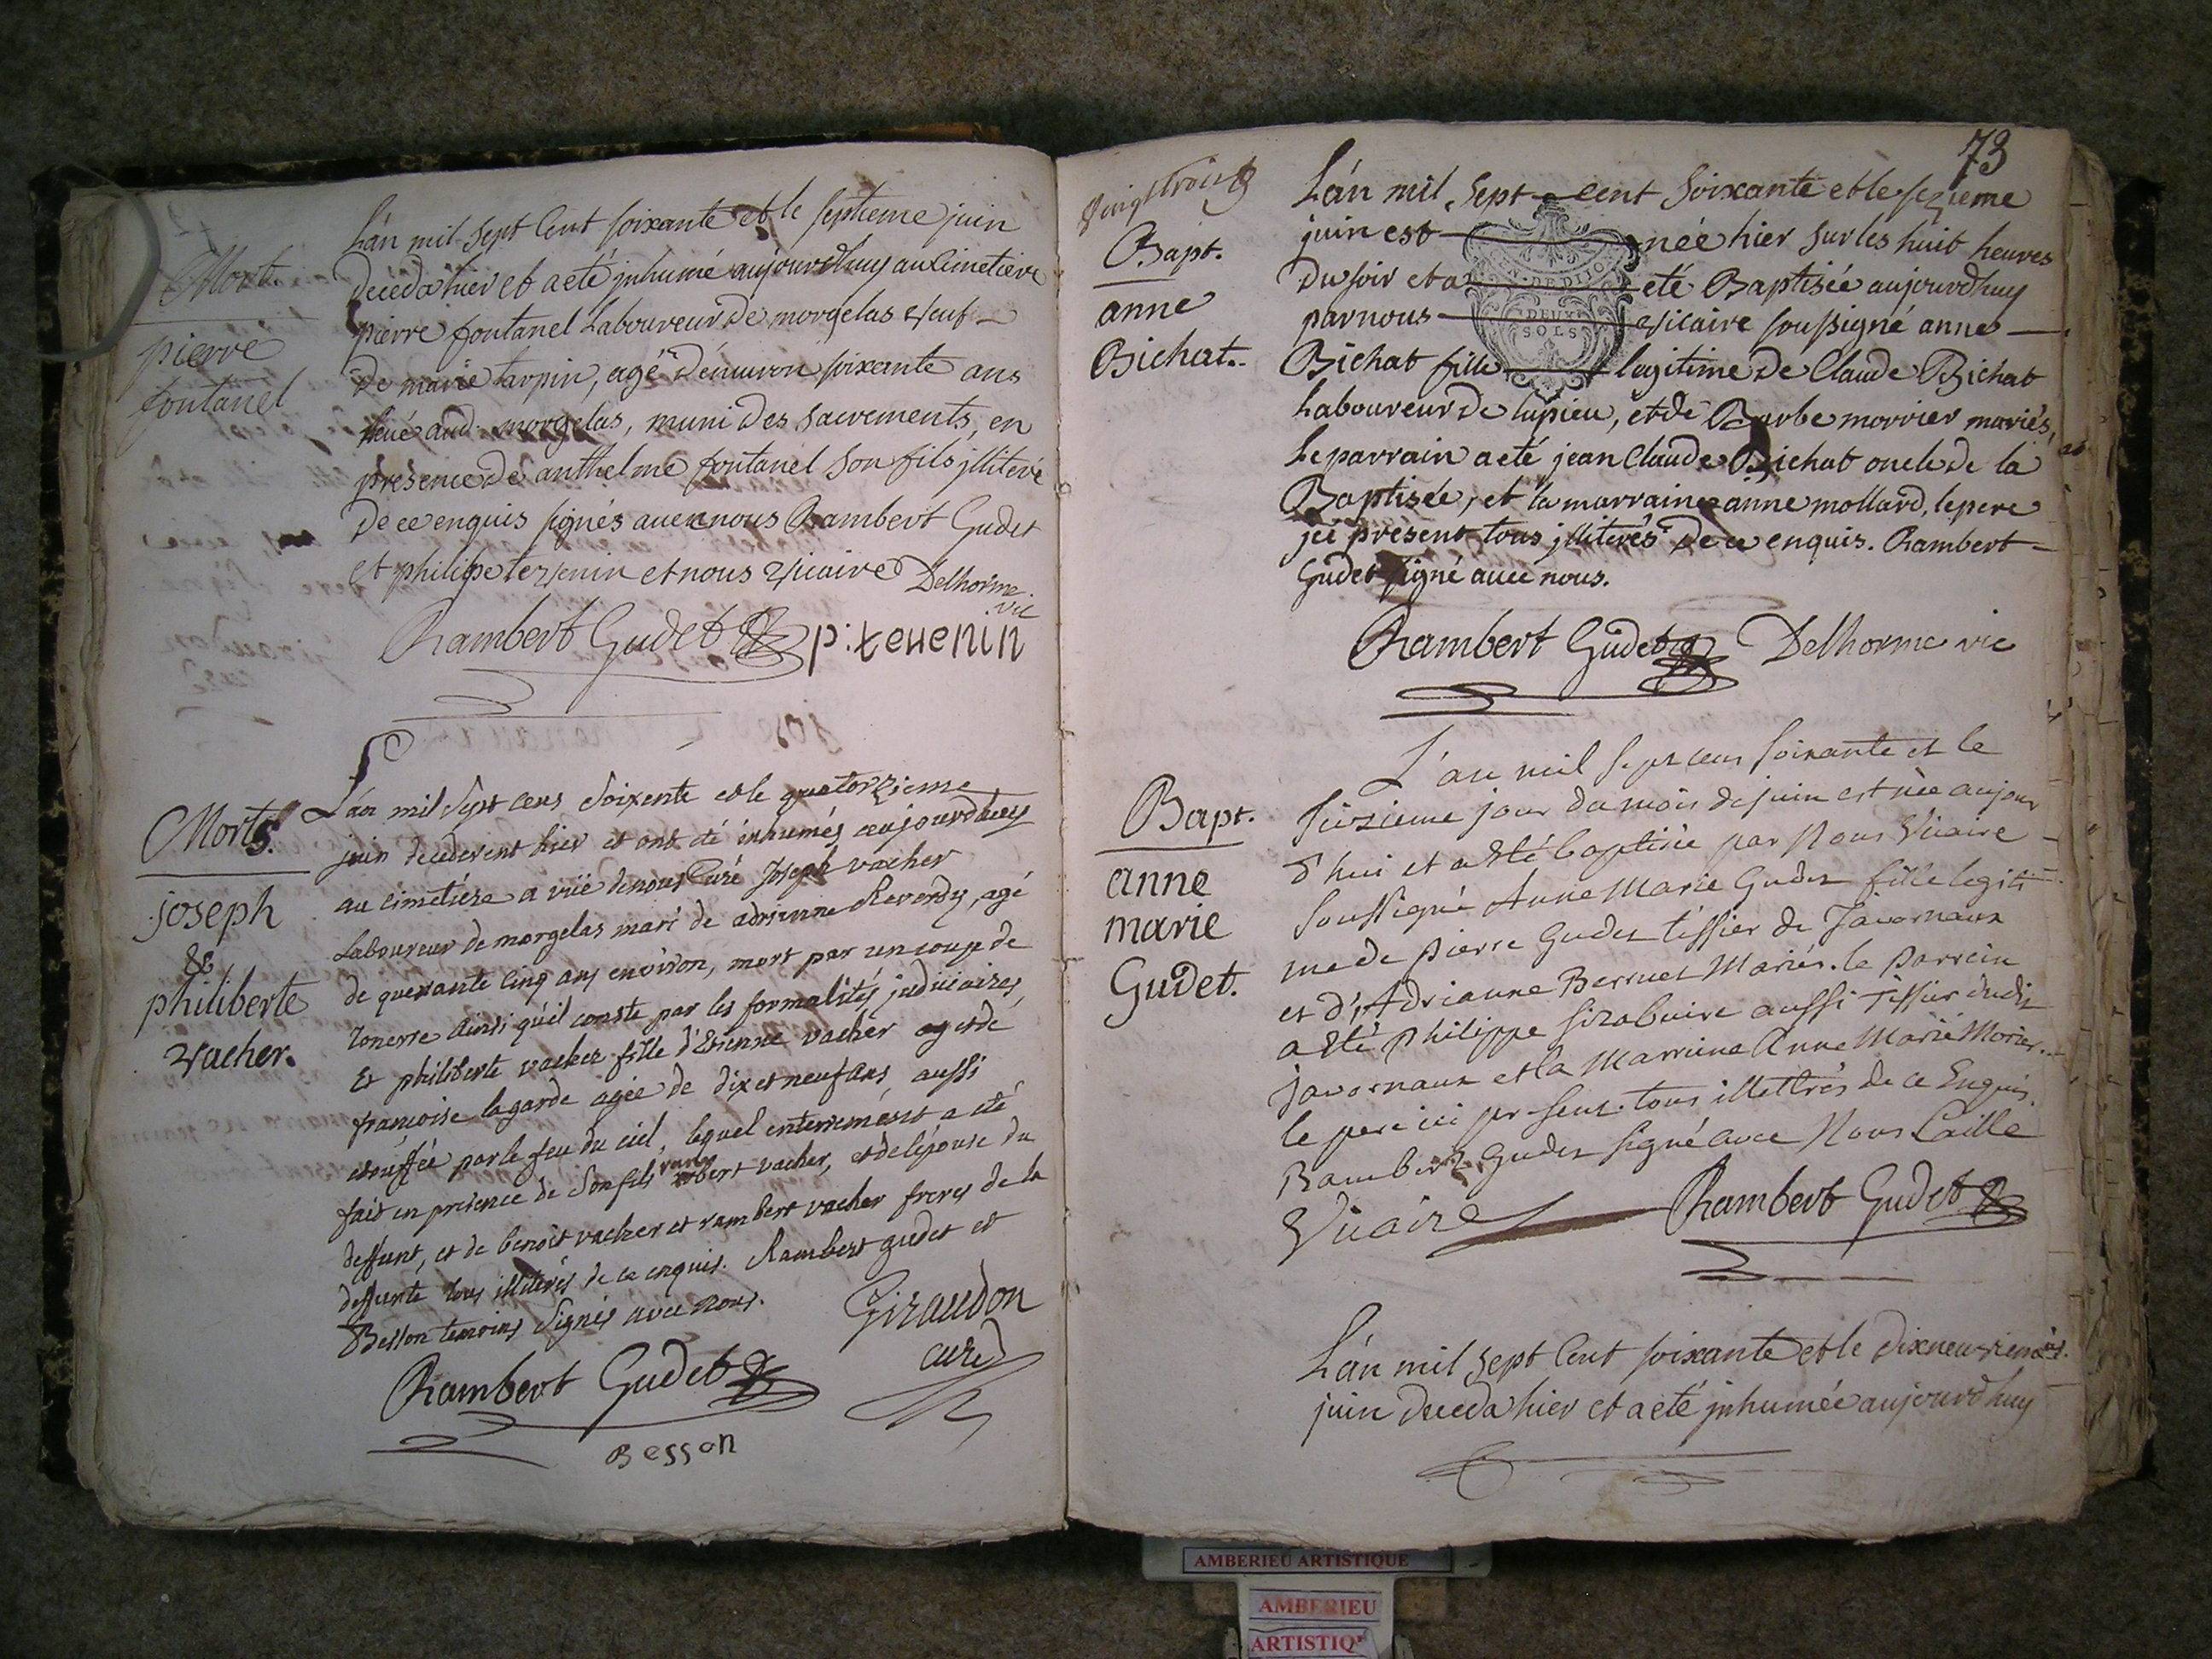 Mort
pierre
fontanel
L'án mil sept Cent soixante et le septieme juin
deceda hier et a eté jnhumé aujourdhuy au Cimetiere
pierre fontanel Laboureur de morgelas veuf
de marie tarpin, agé d'énuiron soixante ans
aud. morgelas, muni des sacrements, en
présence de anthelme fontanel son fils jlliteré
de ce enquis signés auec nous Rambert Gudet
et philipe tevenin et nous vicaire Delhorme
vic
Rambert Gudet p: tevenin
Morts.
joseph
&
philiberte
vacher.
L'án mil sept cens soixente et le quatorzieme
juin decederent hier et ont été inhumés aujourdhuy
au cimetière a vüe de nous Curé Joseph vacher
Laboureur de morgelas mari de adrienne Reverdy, agé
de quarante cinq ans environ, mort par un coup de
tonerre ainsi qu'il conste par les formalités judiciaires,
Et philiberte vacher fille d'Etienne vacher et de
francoise lagarde agée de dix et neuf ans, aussi
etouffée par le feu du ciel, lequel enterrement a eté
fait en presence de son fils robert vacher, et de l'épouse du
deffunt, et de benoit vacher et rambert vacher freres de la
deffunte tous illiterés de ce enquis. Rambert gudet et
Besson temoins signés avec nous.
Giraudon
curé
Rambert Gudet
Besson
73
Bapt.
anne
Bichat.
L'án mil, sept cent soixante et le sezieme
juin est née hier sur les huit heures
du soir et a eté Baptisée aujourdhuy
par nous vicaire soussigné anne
Bichat fille legitime de Claude Bichat
Laboureur de lupieu, et de Barbe morrier mariés,
Le parrain a eté jean Claude Bichat oncle de la
Baptisée, et la marraine anne mollard, le pere
jci présent tous jlliterés de ce enquis. Rambert
Gudet signé auec nous.
GEN. DE DIJON
DEUX
SOLS
Rambert Gudet Delhorme vic
Bapt.
anne
marie
Gudet.
L'an mil sept cens soixante et le
seizieme jour du mois de juin est née aujour
d'hui et a été baptisée par Nous Vicaire
soussigné Anne Marie Gudet fille legiti
me de pierre Gudet tissier de Javornaux
et d'Adrianne Bernet Mariés. le parrein
a été philippe aussi tissier dudit
javornaux et la Marreine Anne Marie Morier.
le pere ici present. tous illettrés de ce Enquis.
Rambert Gudet signé avec Nous Caille
Vicaire Rambert Gudet
L'án mil sept Cent soixante et le dixneuvieme
juin deceda hier et a eté jnhumée aujourdhuy
AMBERIEU ARTISTIQUE
AMBERIEU
ARTISTIQ